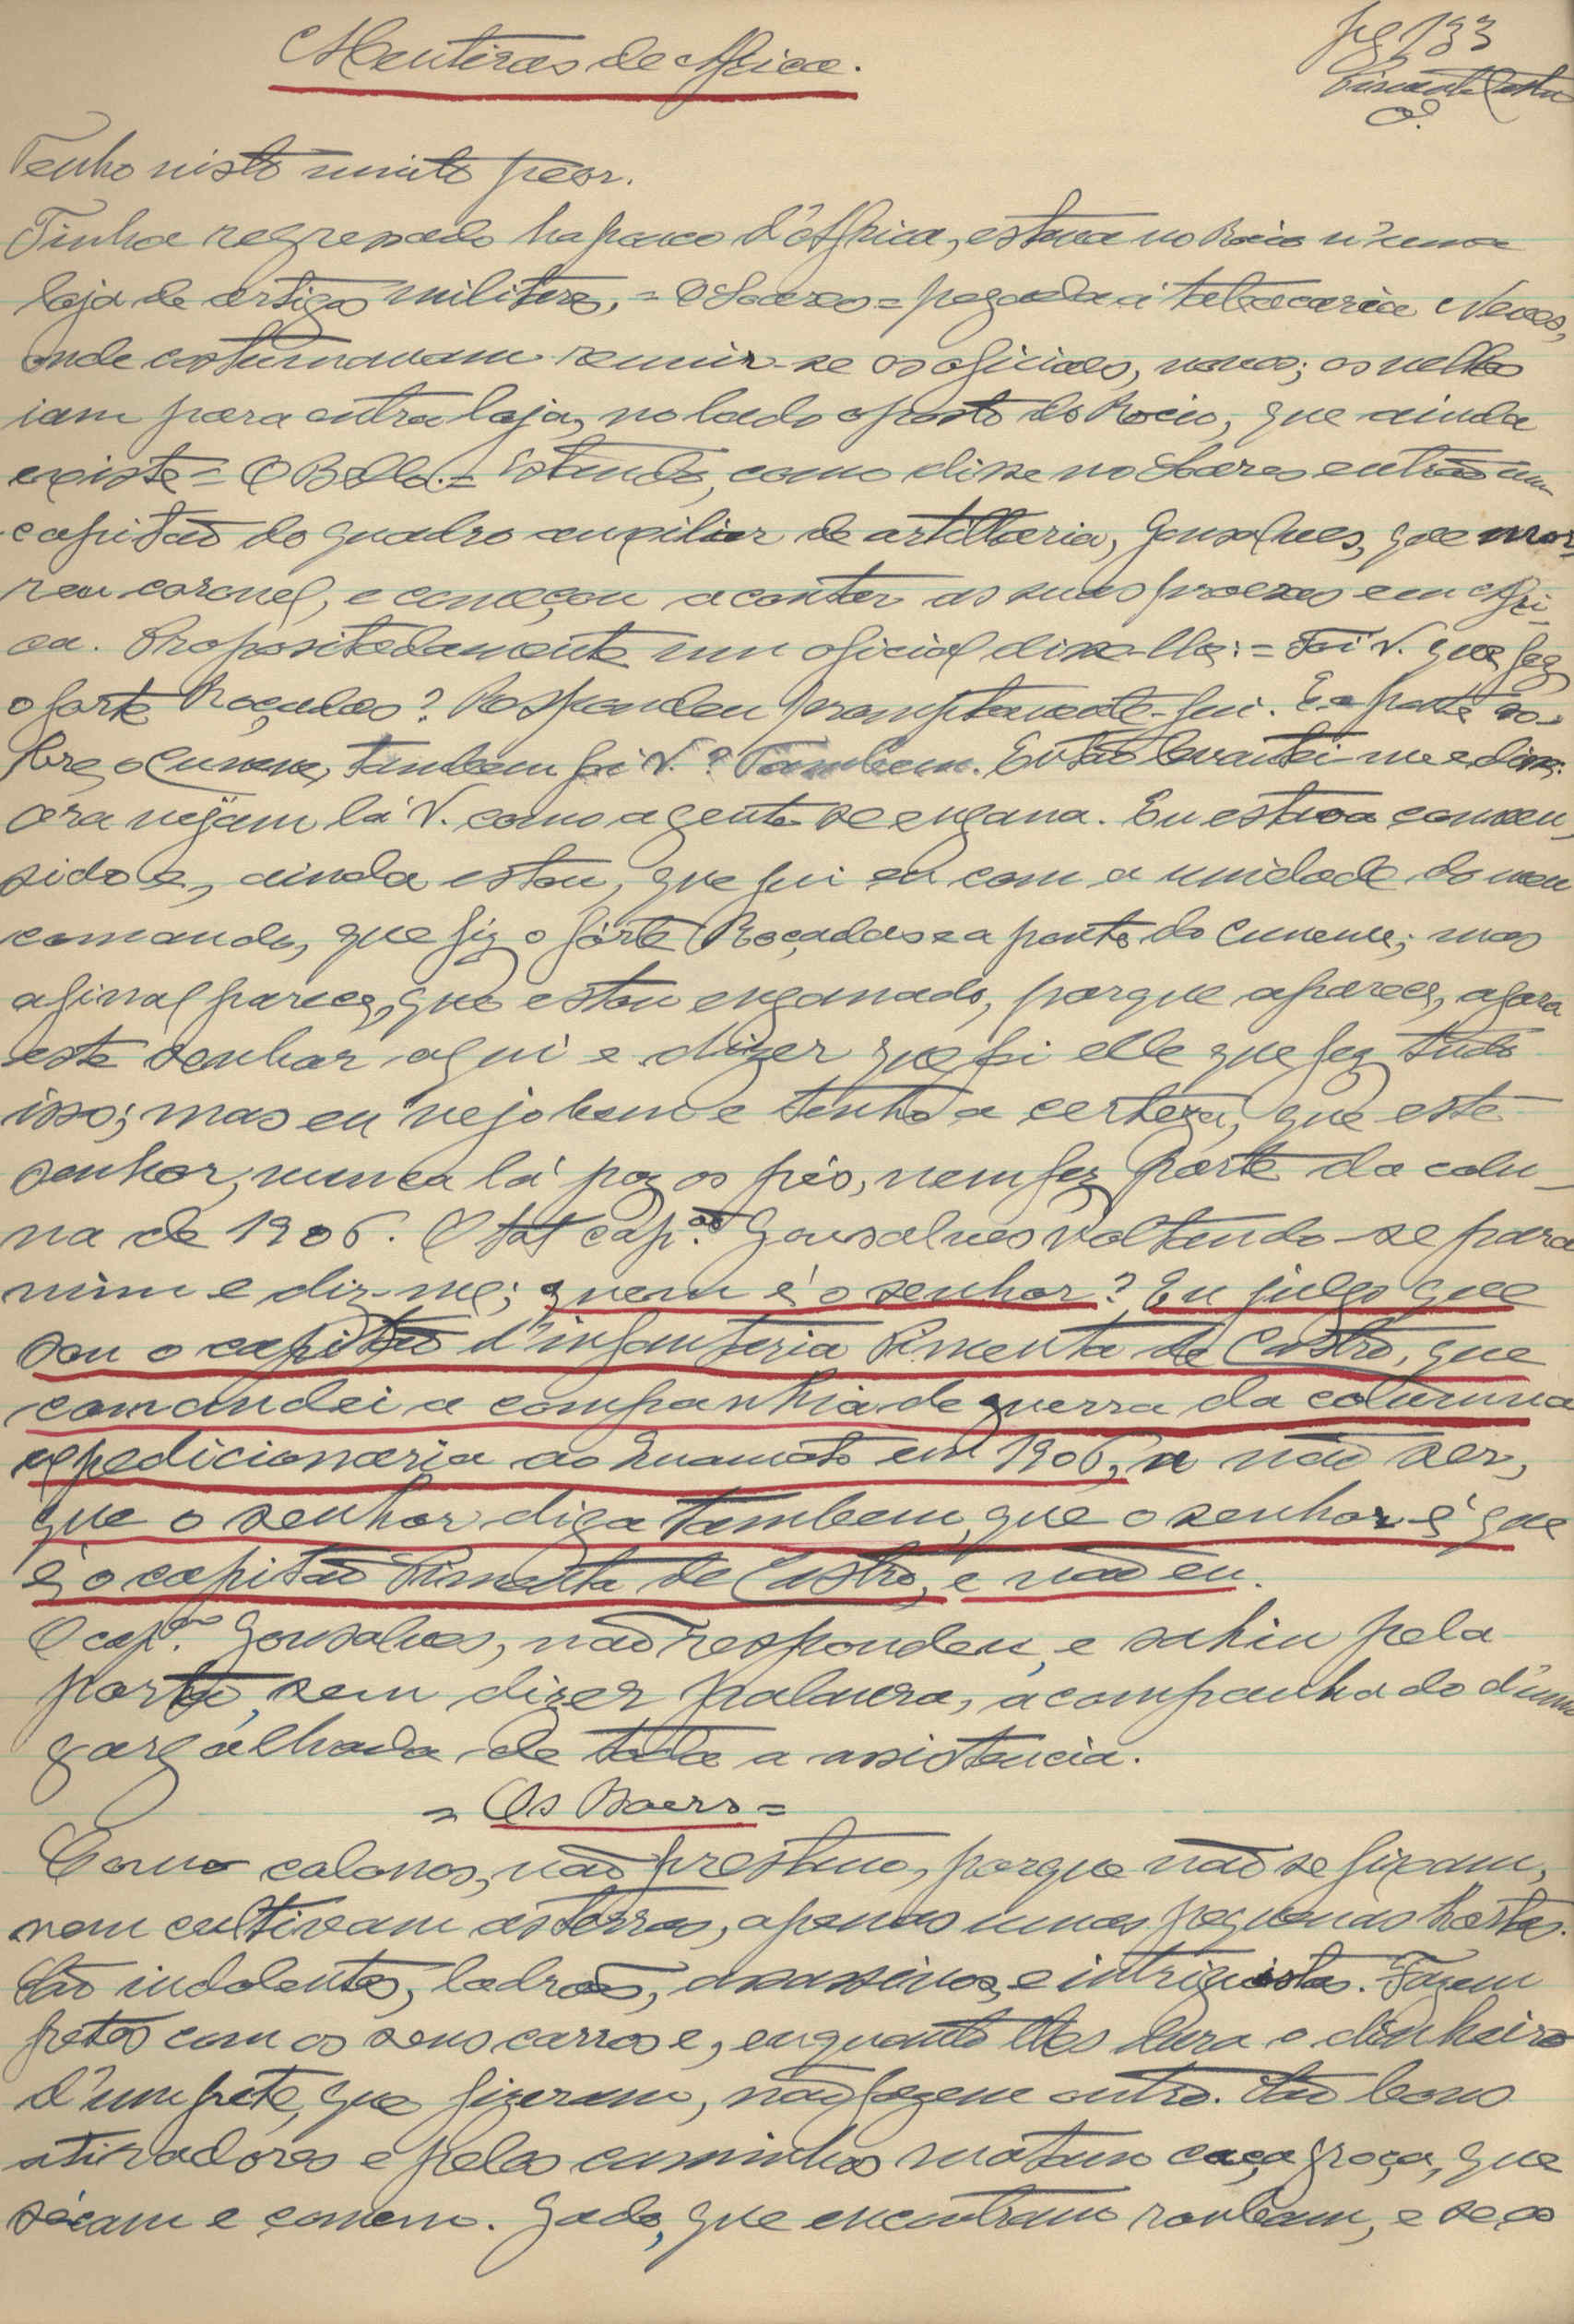 Mentiras de Africa.
fg 133
Pimenta Castro
Tenho visto muito peor.
Tinha regressado ha pouco d'Africa, estava no Rocio n'uma
loja de artigos militares, = O Soares = pegada á tabacaria Neves,
onde costumavam reunir-se os oficiaes, novos; os velhos
iam para outra loja, no lado oposto do Rocio, que ainda
existe = O Bello. = Estando, como disse no Soares entrou um
capitão do quadro auxiliar de artilharia, Gonsalves, que mor-
reu coronel, e começou a contar as suas proezas em Afri-
ca. Propositadamente um oficial disse-lhe: = Foi V. que fez
o forte Roçadas? Respondeu promptamente-fui. E a ponte so-
bre o Cunene, tambem foi V.? Tambem. Então levantei-me e disse:
ora vejam lá V. como a gente se engana. Eu estava conven-
sido e, ainda estou, que fui eu com a unidade do meu
comando, que fiz o fórte Roçadas e a ponte do Cunene; mas
afinal parece, que estou enganado, porque aparece, agora
este senhor aqui e dizer que foi elle que fez tudo
isso; mas eu vejo bem e tenho a certeza, que este
senhor, nunca lá poz os pés, nem fez parte da colu-
na de 1906. O tal cap.ᵃᵒ Gonsalves voltando-se para
mim e diz-me; quem é o senhor? Eu julgo que
sou o capitão d'infanteria Pimenta de Castro, que
comandei a companhia de guerra da columna
expedicionaria ao Cuamato em 1906, a não ser,
que o senhor diga tambem, que o senhor é que
é o capitão Pimenta de Castro, e não eu.
O cap.ᵃᵒ Gonsalves, não respondeu, e sahiu pela
porta, sem dizer palavra, acompanhado d'uma
gargalhada de toda a assistencia.
= Os Boers =
Como colonos, não prestam, porque não se fixam,
nem cultivam as terras, apenas umas pequenas hortas.
São indolentes, ladrões, assassinos, e intriguistas. Fazem
fretes com os seus carros e, enquanto lhes dura o dinheiro
d'um frete, que fizeram, não fazem outro. São bons
atiradores e pelos caminhos matam caça groça, que
sécam e comem. Gado, que encontram roubam, e se os